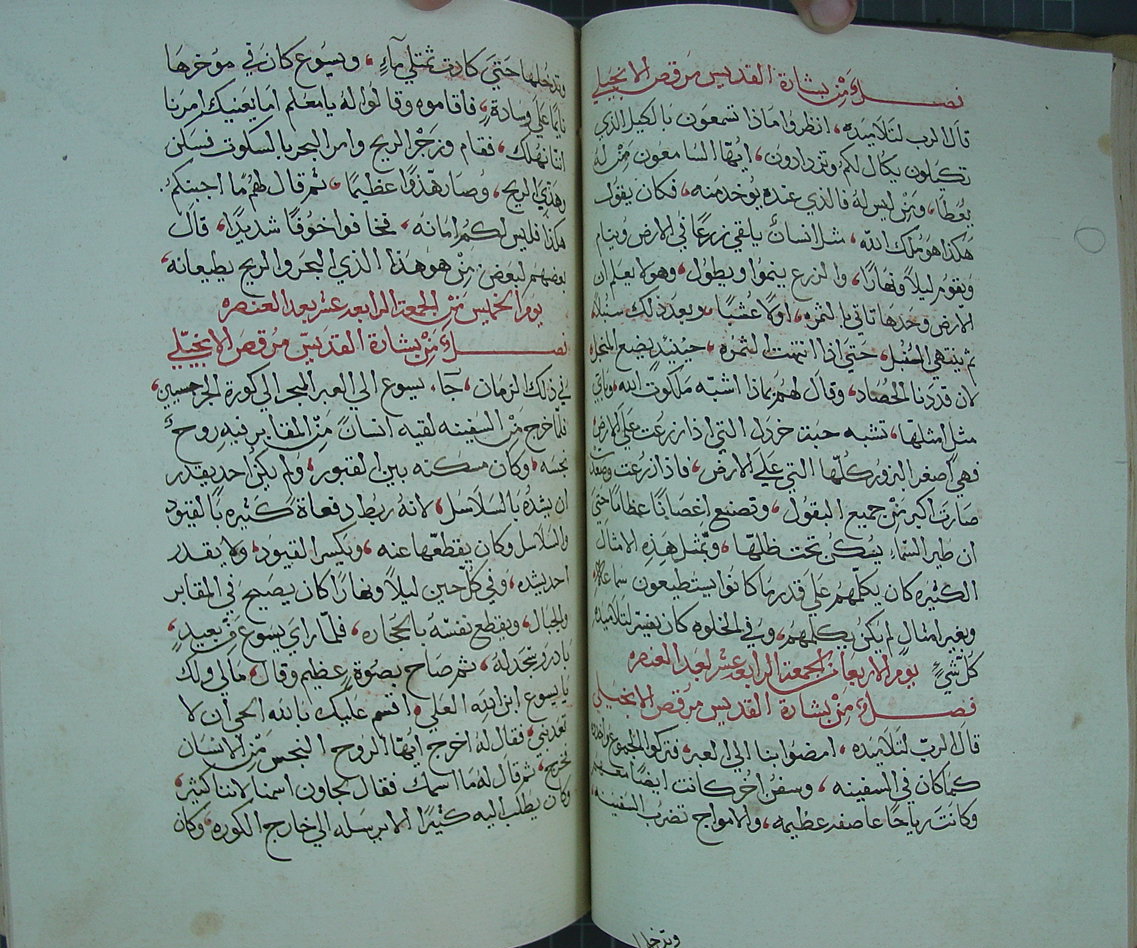 فصل من بشارة القديس مرقص الانجيلي
قال الرب لتلاميذه، انظروا ماذا تسمعون بالكيل الذي
تكيلون يكال لكم وتزدادون، ايها السامعون من له
يُعطا، ومن ليس له فالذي عنده يوخد منه، فكان يقول
هكذا هو مُلك الله، مثل انسان يلقي زرعًا في الارض وينام
ويقوم ليلًا ونهارًا، والزرع ينموا ويطول، وهو لا يعلم ان
الارض وحدها تاتي بالثمره، اولًا عُشبًا، وبعد ذلك سنبلًا
ثم ينتهي السُنبل، حتى اذا انتهت الثمره، حينيد يضع المنجل
لان قد دنا الحصاد، وقال لهم بماذا اشبه ملكوت الله، وباي
مثل امثلها، تشبه حبة خردل التي اذا زرعت على الارض
فهي اصغر البزور كلها التي على الارض، فاذا زرعت وصعد
صارت اكبر من جميع البقول، وتصنع اغصانًا عظامًا حتى
ان طير السماء يسكن تحت ظلها، وبمثل هذه الامثال
الكثيره كان يكلمهم على قدر ما كانوا يستطيعون سماعًا
وبغير امثال لم يكن يكلمهم، وفي الخلوه كان يفسر لتلاميذه
كل شيٍ، يوم الاربعا من الجمعة الرابعه عشر بعد العنصره
فصل من بشارة القديس مرقص الانجيلي
قال الرب لتلاميذه، امضوا بنا الي العبر، فتركوا الجموع واخذوه
كما كان في السفينه، وسفن اخر كانت ايضًا معهم
وكانت رياحًا عاصفه عظيمه، والامواج تضرب السفينه
وتدخلها
وتدخلها حتى كادت تمتلي مآءٍ، ويسوع كان في موخرها
نايمًا على وسادةٍ، فاقاموه وقالوا له يا معلم اما يعنيك امرنا
اننا نهلك، فقام وزجر الريح وامر البحر بالسكوت فسكن
وهدي الريح، وصار هدوًا عظيمًا، ثم قال لهم ما اجبنكم
هكذا فليس لكم امانه، فخافوا خوفًا شديدًا، قال
بعضهم لبعض من هو هذا الذي البحر والريح يطيعانه،
يوم الخميس من الجمعة الرابعه عشر بعد العنصره
فصل من بشارة القديس مرقص الانجيلي
في ذلك الزمان، جآء يسوع الي العبر البحر الي كورة الجرجسيين،
فلما خرج من السفينه لقيه انسان من المقابر فيه روح
نجسه، وكان مسكنه بين القبور، ولم يكن احد يقدر
ان يشده بالسلاسل، لانه رُبط دفعاة كثيره بالقيود
والسلاسل وكان يقطعها عنه، ويكسر القيود، ولا يقدر
احد يشده، وفي كل حين ليلًا ونهارًا كان يصيح في المقابر
والجبال، ويقطع نفسه بالحجاره، فلما راى يسوع من بعيدٍ،
بادر وسجد له، ثم صاح بصوة عظيم وقال، مالي ولك
يا يسوع ابن الله العلي، اقسم عليك بالله الحي ان لا
تعذبني، فقال له اخرج ايها الروح النجس من الانسان
فخرج، ثم قال له ما اسمك فقال لجاون اسمنا لاننا كثير،
وكان يطلب اليه كثيرًا الا يرسله الي خارج الكوره، وكان